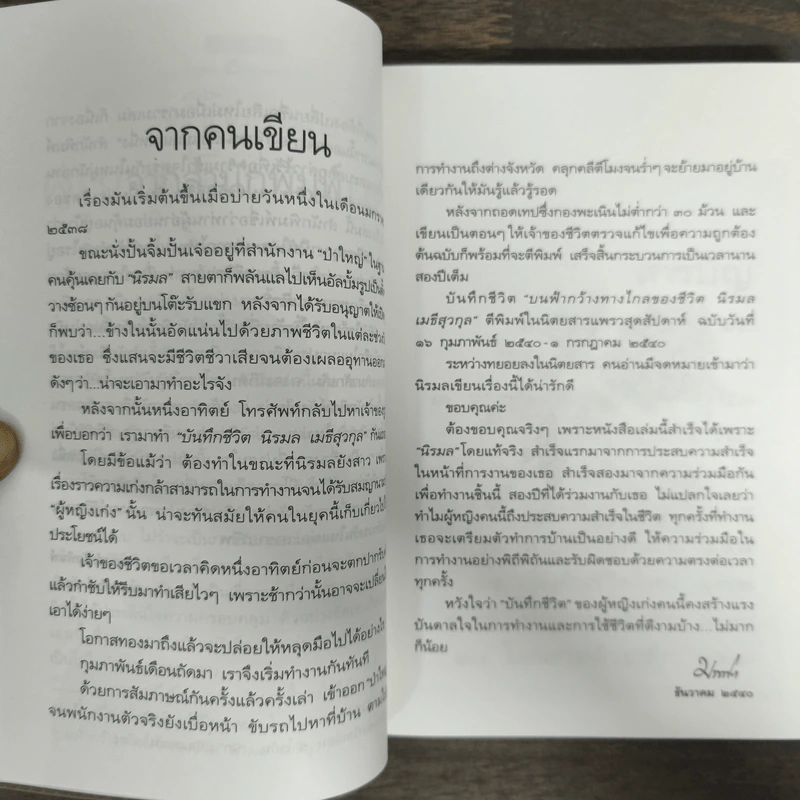 จากคนเขียน
เรื่องมันเริ่มต้นขึ้นเมื่อบ่ายวันหนึ่งในเดือนมกรา
๒๕๓๘
ขณะนั่งปั้นจิ้มปั้นเจ๋ออยู่ที่สำนักงาน "ป่าใหญ่" ในฐาน
คนคุ้นเคยกับ "นิรมล" สายตาก็พลันแลไปเห็นอัลบั้มรูปเป็นตั้ง
วางซ้อนๆ กันอยู่บนโต๊ะรับแขก หลังจากได้รับอนุญาตให้เปิด
ก็พบว่า...ข้างในนั้นอัดแน่นไปด้วยภาพชีวิตในแต่ละช่วง
ของเธอ ซึ่งแสนจะมีชีวิตชีวาเสียจนต้องเผลออุทานออก
ดังๆ ว่า...น่าจะเอามาทำอะไรจัง
หลังจากนั้นหนึ่งอาทิตย์ โทรศัพท์กลับไปหาเจ้าของ
เพื่อบอกว่า เรามาทำ "บันทึกชีวิต นิรมล เมธีสุวกุล" กัน
โดยมีข้อแม้ว่า ต้องทำในขณะที่นิรมลยังสาว เพราะ
เรื่องราวความเก่งกล้าสามารถในการทำงานจนได้รับสมญานาม
"ผู้หญิงเก่ง" นั้น น่าจะทันสมัยให้คนในยุคนี้เก็บเกี่ยวไป
ประโยชน์ได้
เจ้าของชีวิตขอเวลาคิดหนึ่งอาทิตย์ก่อนจะตกปากรับ
แล้วกำชับให้รีบมาทำเสียไวๆ เพราะช้ากว่านั้นอาจจะเปลี่ยน
เอาได้ง่ายๆ
โอกาสทองมาถึงแล้วจะปล่อยให้หลุดมือไปได้อย่างไร
กุมภาพันธ์เดือนถัดมา เราจึงเริ่มทำงานกันทันที
ด้วยการสัมภาษณ์กันครั้งแล้วครั้งเล่า เข้าออก "ป่าใหญ่
จนพนักงานตัวจริงยังเบื่อหน้า ขับรถไปหาที่บ้าน ตามไป
การทำงานถึงต่างจังหวัด คลุกคลีตีโมงจนร่ำๆ จะย้ายมาอยู่บ้าน
เดียวกันให้มันรู้แล้วรู้รอด
หลังจากถอดเทปซึ่งกองพะเนินไม่ต่ำกว่า ๓๐ ม้วน และ
เขียนเป็นตอนๆ ให้เจ้าของชีวิตตรวจแก้ไขเพื่อความถูกต้อง
ต้นฉบับก็พร้อมที่จะตีพิมพ์ เสร็จสิ้นกระบวนการเป็นเวลานาน
สองปีเต็ม
บันทึกชีวิต "บนฟ้ากว้างทางไกลของชีวิต นิรมล
เมธีสุวกุล" ตีพิมพ์ในนิตยสารแพรวสุดสัปดาห์ ฉบับวันที่
๑๖ กุมภาพันธ์ ๒๕๔๐-๑ กรกฎาคม ๒๕๔๐
ระหว่างทยอยลงในนิตยสาร คนอ่านมีจดหมายเข้ามาว่า
นิรมลเขียนเรื่องนี้ได้น่ารักดี
ขอบคุณค่ะ
ต้องขอบคุณจริงๆ เพราะหนังสือเล่มนี้สำเร็จได้เพราะ
"นิรมล" โดยแท้จริง สำเร็จแรกมาจากการประสบความสำเร็จ
ในหน้าที่การงานของเธอ สำเร็จสองมาจากความร่วมมือกัน
เพื่อทำงานชิ้นนี้ สองปีที่ได้ร่วมงานกับเธอ ไม่แปลกใจเลยว่า
ทำไมผู้หญิงคนนี้ถึงประสบความสำเร็จในชีวิต ทุกครั้งที่ทำงาน
เธอจะเตรียมตัวทำการบ้านเป็นอย่างดี ให้ความร่วมมือใน
การทำงานอย่างพิถีพิถันและรับผิดชอบด้วยความตรงต่อเวลา
ทุกครั้ง
หวังใจว่า "บันทึกชีวิต" ของผู้หญิงเก่งคนนี้คงสร้างแรง
บันดาลใจในการทำงานและการใช้ชีวิตที่ดีงามบ้าง...ไม่มาก
ก็น้อย
ธันวาคม ๒๕๔๐